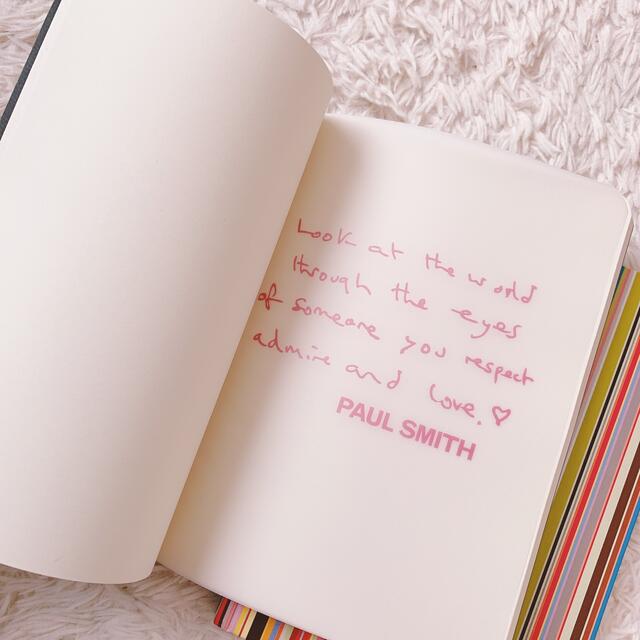 Look at the world
through the eyes
of someone you respect
admire and love. ♡
PAUL SMITH